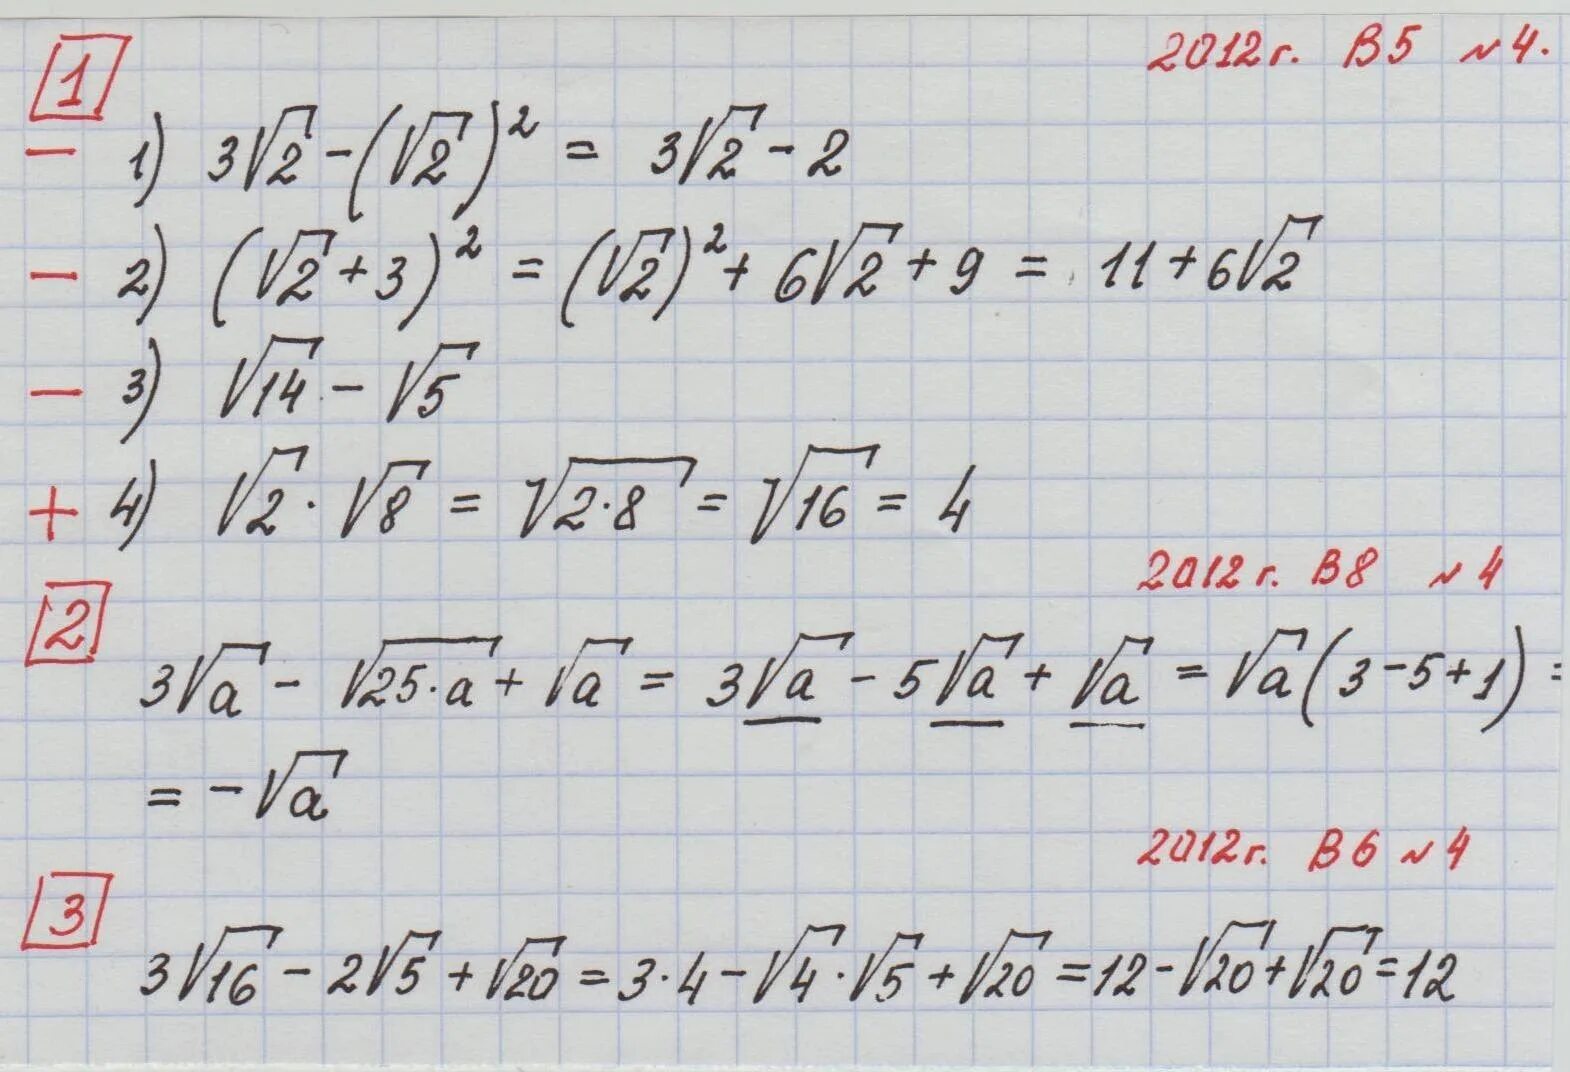 2012 г. В5 №4.
1
− 1) 3√2 − (√2)² = 3√2 − 2
− 2) (√2 + 3)² = (√2)² + 6√2 + 9 = 11 + 6√2
− 3) √14 − √5
+ 4) √2 · √8 = √2·8 = √16 = 4
2012 г. В8 №4
2
3√a − √25·a + √a = 3√a − 5√a + √a = √a (3−5+1) =
= −√a
2012 г. В6 №4
3
3√16 − 2√5 + √20 = 3·4 − √4·√5 + √20 = 12 − √20 + √20 = 12